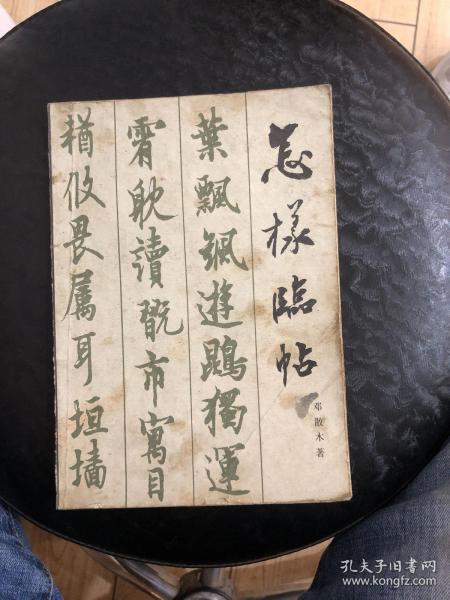 怎樣臨帖
邓散木著
葉飄颻遊鵾獨運
霄耽讀翫市寓目
輶攸畏属耳垣墻
孔夫子旧书网
www.kongfz.com